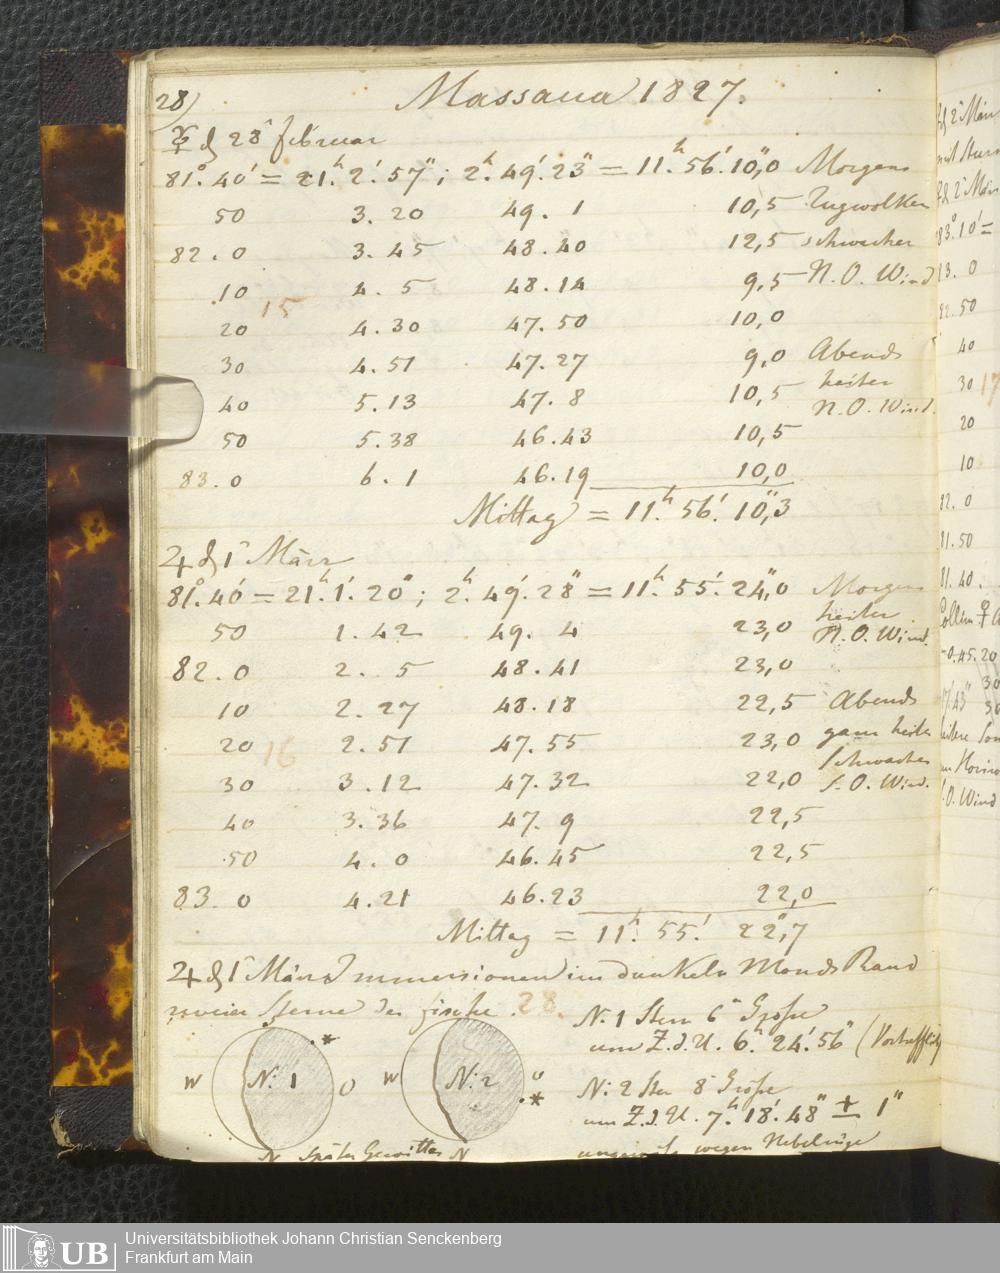 28)
Massaua 1827.
☿ d 28" februar
81°. 40' = 21h. 2'. 57"; 2h. 49'. 23" = 11h. 56'. 10",0 Morgens
50 3. 20 49. 1 10,5 Zugwolken
82. 0 3. 45 48. 40 12,5 schwacher
10 4. 5 48. 14 9,5 N. O. Wind
15
20 4. 30 47. 50 10,0
30 4. 51 47. 27 9,0 Abends
40 5. 13 47. 8 10,5 heiter N. O. Wind.
50 5. 38 46. 43 10,5
83. 0 6. 1 46. 19 10,0
Mittag = 11h. 56'. 10",3
♃ d 1" März
81°. 40' = 21h. 1'. 20"; 2h. 49'. 28" = 11h. 55'. 24",0 Morgens
50 1. 42 49. 4 23,0 heiter N. O. Wind.
82. 0 2. 5 48. 41 23,0
10 2. 27 48. 18 22,5 Abends
20 16 2. 51 47. 55 23,0 ganz heiter
30 3. 12 47. 32 22,0 schwacher S. O. Wind.
40 3. 36 47. 9 22,5
50 4. 0 46. 45 22,5
83. 0 4. 21 46. 23 22,0
Mittag = 11h. 55'. 22",7
♃ d 1" März Immersionen im dunkeln Monds Rand
zweier Sterne der fische. 28.
N: 1 Stern 6" Größe
um Z. d. U. 6h. 24'. 56" (Vortrefflich
W N: 1 O W N: 2 O
N: 2 Ster 8" Größe
um Z. d. U. 7h. 18'. 48" ± 1"
N später Gewitter N
wegen Nebelzüge
d 2" März
d 2" März
83°. 10' =
83. 0
82. 50
40
30 17
20
10
82. 0
81. 50
81. 40.
-0. 45. 20
30
17' 43" 30
S. O. Wind
UB
Universitätsbibliothek Johann Christian Senckenberg
Frankfurt am Main